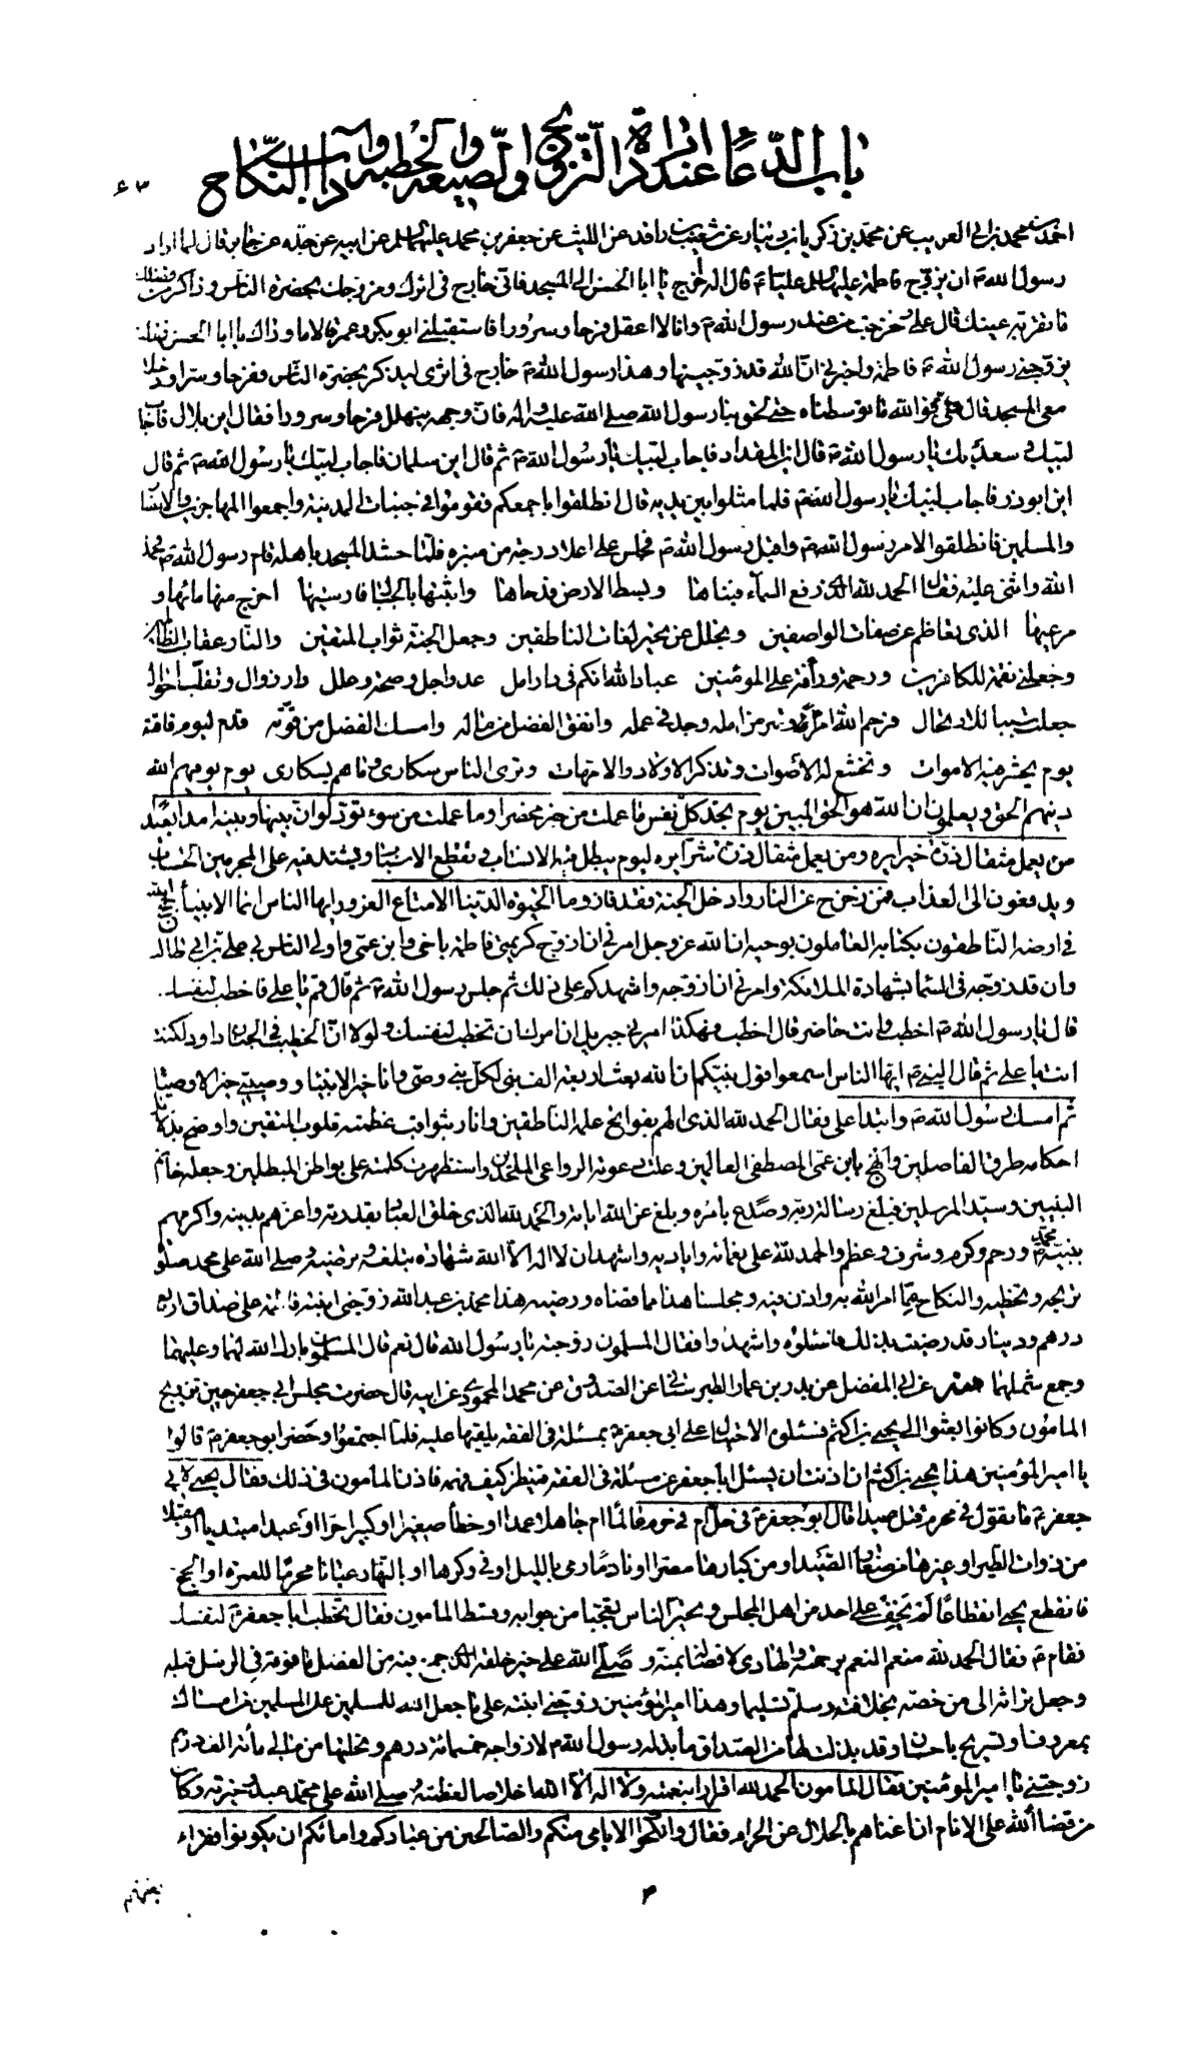 باب الدعاء عند ارادة التزويج والصيغة والخطبة وآداب النكاح
محمد بن ابي الغريب عن محمد بن زكريا بن دينار عن شعيب بن واقد عن الليث عن جعفر بن محمد عليهما السلم عن ابيه عن جده عن جابر قال لما اراد
رسول الله ص ان يزوج فاطمة عليها السلم عليا ع قال له اخرج يا ابا الحسن الى المسجد فاني خارج في اثرك ومزوجك بحضرة الناس وذاكر من فضلك
ما تقر به عينك قال علي فخرجت من عند رسول الله ص وانا لا اعقل فرحا وسرورا فاستقبلني ابو بكر وعمر قالا ما وراك يا ابا الحسن فقلت
يزوجني رسول الله ص فاطمة واخبرني ان الله قد زوجنيها وهذا رسول الله ص خارج في اثري ليذكر بحضرة الناس ففرحا وسرا ودخلا
معي المسجد قال علي فوالله ما توسطناه حتى لحق بنا رسول الله صلى الله عليه واله وان وجهه يتهلل فرحا وسرورا فقال اين بلال فاجاب
لبيك وسعديك يا رسول الله ص قال اين المقداد فاجاب لبيك يا رسول الله ص ثم قال اين سلمان فاجاب لبيك يا رسول الله ص ثم قال
اين ابو ذر فاجاب لبيك يا رسول الله ص فلما مثلوا بين يديه قال انطلقوا باجمعكم فقوموا في جنبات المدينة واجمعوا المهاجرين والانصار
والمسلمين فانطلقوا لامر رسول الله ص واقبل رسول الله ص فجلس على اعلا درجة من منبره فلما حشد المسجد باهله قام رسول الله ص فحمد
الله واثنى عليه فقال الحمد لله الذي رفع السماء فبناها وبسط الارض فدحاها واثبتها بالجبال فارسيها اخرج منها مائها و
مرعيها الذي تعاظم عن صفات الواصفين وتجلل عن تحبير لغات الناطقين وجعل الجنة ثواب المتقين والنار عقاب الظالمين
وجعلني نقمة للكافرين ورحمة ورأفة على المؤمنين عباد الله انكم في دار امل عدو اجل وصحة وعلل دار زوال وتقلب احوال
جعلت سببا للارتحال فرحم الله امرأ قصر من امله وجد في عمله وانفق الفضل من ماله وامسك الفضل من قوته قدم ليوم فاقته
يوم يحشر فيه الاموات وتخشع له الاصوات وتذكر الاولاد والامهات وترى الناس سكارى وما هم بسكارى يوم يوفيهم الله
دينهم الحق ويعلمون ان الله هو الحق المبين يوم تجد كل نفس ما عملت من خير محضرا وما عملت من سوء تود لو ان بينها وبينه امدا بعيدا
من يعمل مثقال ذرة خيرا يره ومن يعمل مثقال ذرة شرا يره ليوم يبطل فيه الانساب وتقطع الاسباب ويشتد فيه على المجرمين الحساب
ويدفعون الى العذاب فمن زحزح عن النار وادخل الجنة فقد فاز وما الحيوة الدنيا الا متاع الغرور ايها الناس انما الانبياء حجج الله
في ارضه الناطقون بكتابه العاملون بوحيه ان الله عز وجل امرني ان ازوج كريمتي فاطمة باخي وابن عمي واولى الناس بي علي بن ابي طالب
وان قد زوجه في السماء بشهادة الملائكة وامرني ان ازوجه واشهدكم على ذلك ثم جلس رسول الله ص ثم قال قم يا علي فاخطب لنفسك
قال يا رسول الله ص اخطب وانت حاضر قال اخطب فهكذا امرني جبريل ان امرك ان تخطب لنفسك ولولا ان الخطيب في الجنان داود لكنت
انت يا علي ثم قال النبي ص ايها الناس اسمعوا قول نبيكم ان الله بعث اربعة الف نبي لكل نبي وصي وانا خير الانبياء ووصيي خير الاوصياء
ثم امسك رسول الله ص وابتدا علي فقال الحمد لله الذي الهم بفواتح علمه الناطقين وانار بثواقب عظمته قلوب المتقين واوضح بدلائل
احكامه طرق الفاصلين وانهج بابن عمي المصطفى العالمين وعلت دعوته لرواعي الملحدين واستظهرت كلمته على بواطن المبطلين وجعله خاتم
النبيين وسيد المرسلين فبلغ رسالة ربه وصدع بامره وبلغ عن الله اياته والحمد لله الذي خلق العباد بقدرته واعزهم بدينه واكرمهم
بنبيه محمد ص ورحم وكرم وشرف وعظم والحمد لله على نعمائه واياديه واشهد ان لا اله الا الله شهادة تبلغه وترضيه وصلى الله على محمد صلوة
تربحه وتحظيه والنكاح مما امر الله به واذن فيه ومجلسنا هذا مما قضاه ورضيه هذا محمد بن عبد الله زوجني ابنته فاطمة على صداق اربع
درهم ودينار قد رضيت بذلك فاسئلوه واشهدوا فقال المسلمون زوجته يا رسول الله قال نعم قال المسلمون بارك الله لهما وعليهما
وجمع شملهما عن ابي المفضل عن بدر بن عمار الطبرستاني عن الصدوق عن محمد المحمودي عن ابيه قال حضرت مجلس ابي جعفر حين تزويج
المامون وكانوا بعثوا الى يحيى بن اكثم فسئلوه الاحتيال على ابي جعفر ع بمسئلة في الفقه يلقيها عليه فلما اجتمعوا وحضر ابو جعفر ع قالوا
يا امير المؤمنين هذا يحيى بن اكثم ان اذنت ان يسئل ابا جعفر عن مسئلة في الفقه فينظر كيف فهمه فاذن المامون في ذلك فقال يحيى لابي
جعفر ع ما تقول في محرم قتل صيدا قال ابو جعفر ع في حل ام في حرم عالما ام جاهلا عمدا او خطأ صغيرا او كبيرا حرا او عبدا مبتديا او مقبلا
من ذوات الطير او غيرها من صغار الصيد او من كبارها مصرا او نادما رمى بالليل او في وكرها او بالنهار عيانا محرما للعمرة او الحج
فانقطع يحيى انقطاعا لم يخف على احد من اهل المجلس وتحير الناس تعجبا من جوابه ونشط المامون فقال تخطب ابا جعفر لنفسك
فقام ع فقال الحمد لله منعم النعم برحمته والهادي لافضاله بمنه وصلى الله على خير خلقه الذي جمع فيه من الفضل ما فرقه في الرسل قبله
وجعل تراثه الى من خصه بخلافته وسلم تسليما وهذا امير المؤمنين زوجني ابنته على ما جعل الله للمسلمين على المسلمين من امساك
بمعروف او تسريح باحسان وقد بذلت لها من الصداق ما بذله رسول الله ص لازواجه خمسمائة درهم ونحلتها من مالي مائة الف درهم
زوجتني يا امير المؤمنين فقال المامون الحمد لله اقرارا بنعمته ولا اله الا الله اخلاصا لعظمته وصلى الله على محمد عبده وخيرته وكان
من قضاء الله على الانام ان اغناهم بالحلال عن الحرام فقال وانكحوا الايامى منكم والصالحين من عبادكم وامائكم ان يكونوا فقراء
يغنهم